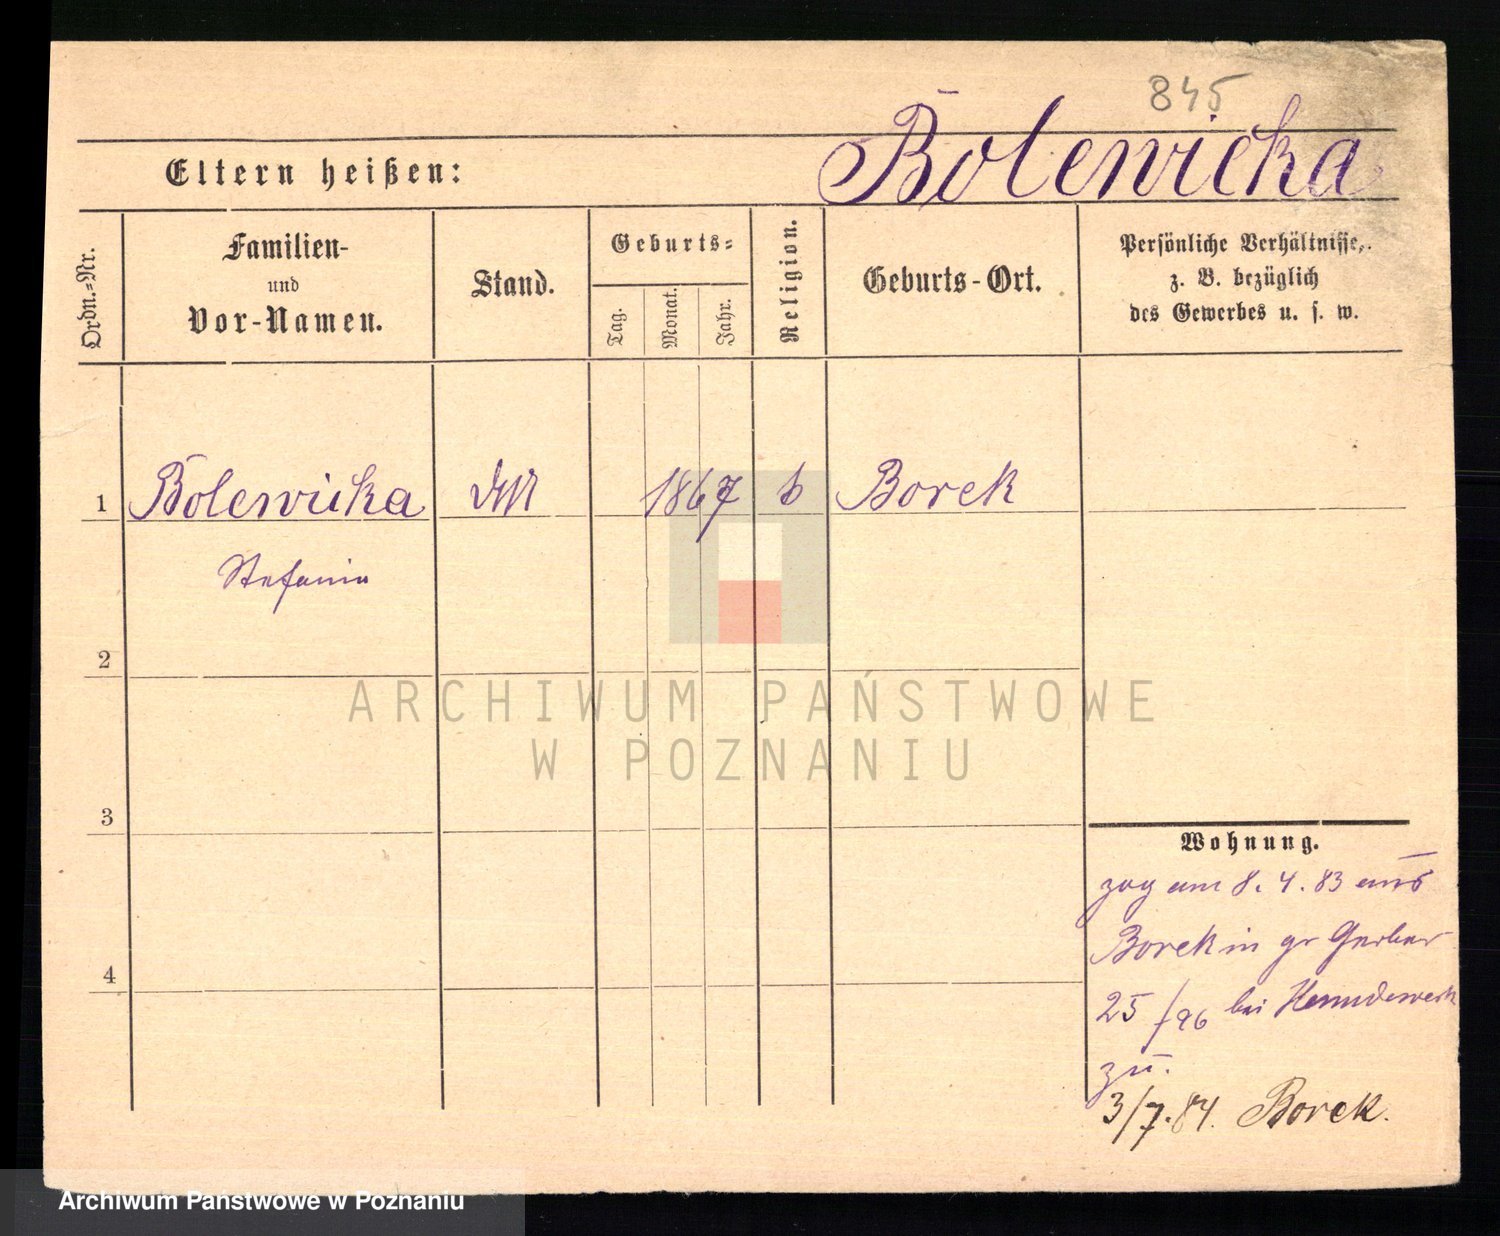 845
Bolewicka
Eltern heißen:
Ordn.=Nr.
Familien-
und
Vor-Namen.
Stand.
Geburts=
Tag.
Monat.
Jahr.
Religion.
Geburts-Ort.
Persönliche Verhältnisse,
z. B. bezüglich
des Gewerbes u. s. w.
1 Bolewicka 1867 Borek
Stefania
2
3
4
Wohnung.
zog am 8. 4. 83 aus
Borek in gr Gerber
25/96 bei
zu.
3/7. 84. Borek.
ARCHIWUM PAŃSTWOWE
W POZNANIU
Archiwum Państwowe w Poznaniu